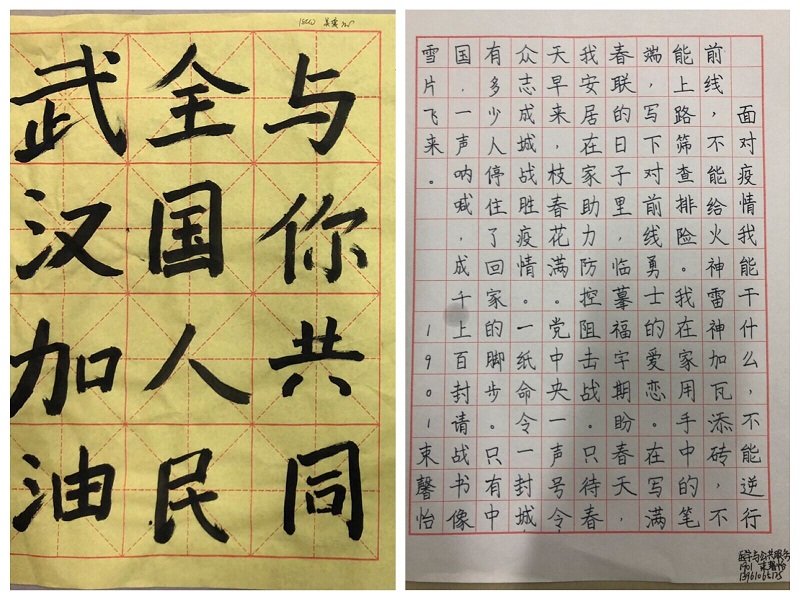 与你共同
全国人民
武汉加油
面对疫情我能干什么，不能逆行
前线，不能给火神雷神加瓦添砖，不
能上路筛查排险。我在家用手中的笔
端，写下对前线勇士的爱恋。在写满
春联的日子里，临摹福宇期盼春天，
我安居在家助力防控阻击战。只待春
天早来，枝春花满。党中央一声号令
众志成城，战胜疫情。一纸命令一封城
有多少人停住了回家的脚步。只有中
国，一声呐喊，成千上百封请战书像
雪片飞来。 1901束馨怡
医学与公共服务
1901 束馨怡